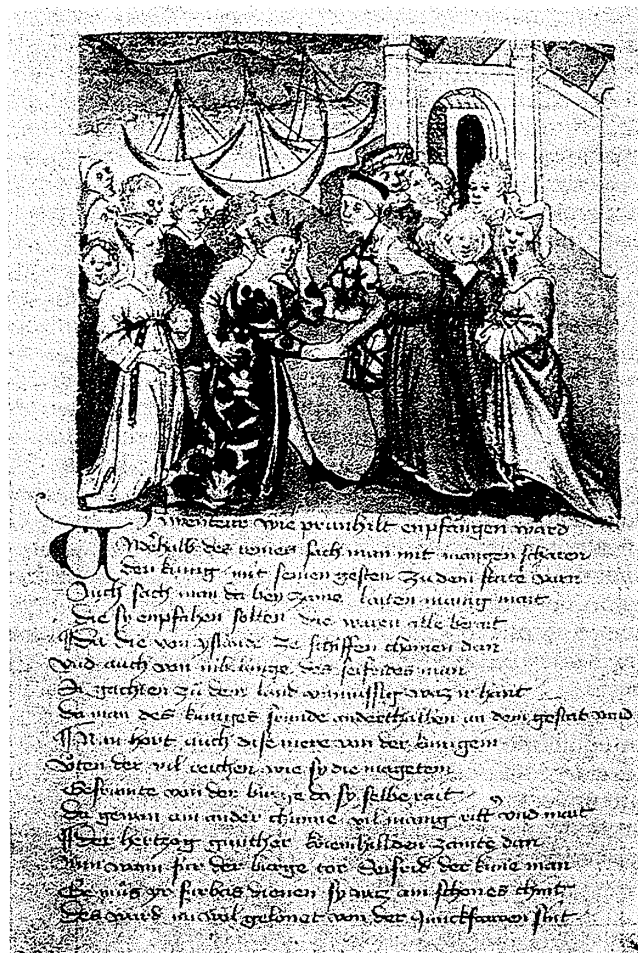 Awenteur wie prunhilt enpfangen ward
des reines sach man mit mangen scharen
den kunig mit seinen gesten zu dem state varn
Auch sach man da bey zame laiten manig mait
die sy enpfahen solten die waren alle berait
¶ Da die von yslande ze schiffen chomen dan
vnd auch von nibelunge des seifrides man
Sy gachten zu dem land vnmussig waz ir hant
da man des kuniges frunde anderthalben an dem gestat vand
¶ Nun hort auch dise mere von der kunigein
vten der vil reichen wie sy die magetein
von der burge da sy selbe rait
da gewan ain ander chunne vil manig ritter vnd mait
¶ Der hertzog gunther kriemhilden zamte dan
fur der burge tor Seifrid der kune man
muss yr furbas dienen sy waz ain schones chint
des ward im wol gelonet von der junckfrawen sint